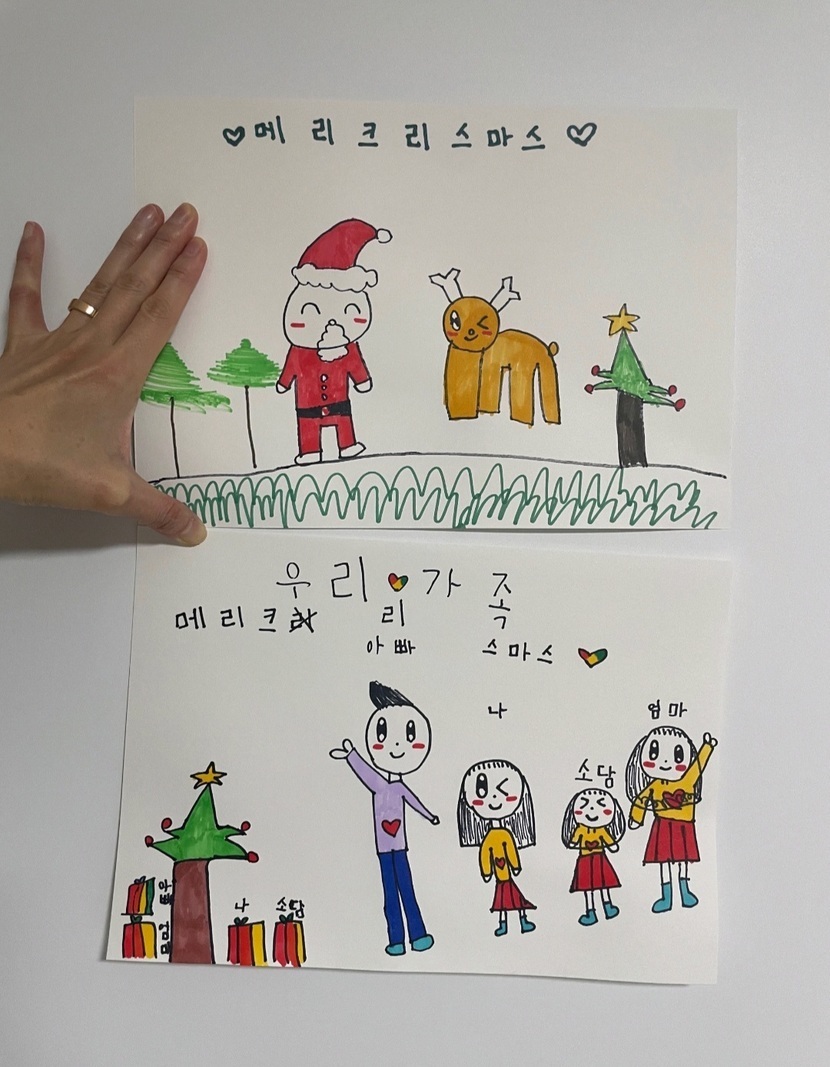 ♥메리크리스마스♡
우리♥가족
메리크 리
아빠 스마스♥
나 엄마
소담
아빠
나 소담
엄마